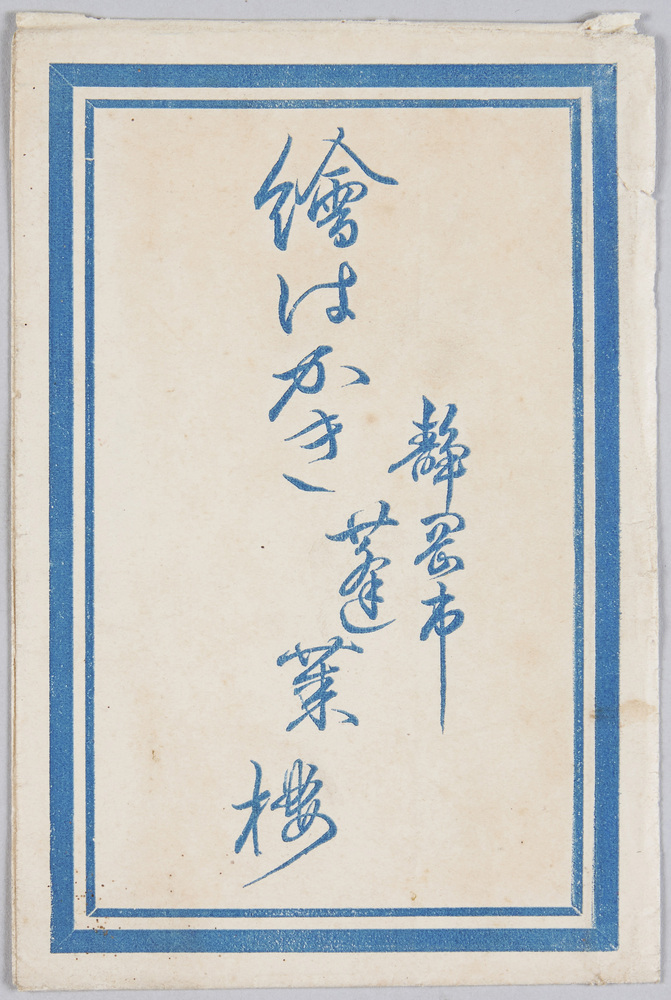 繪はかき
静岡市
蓬莱樓